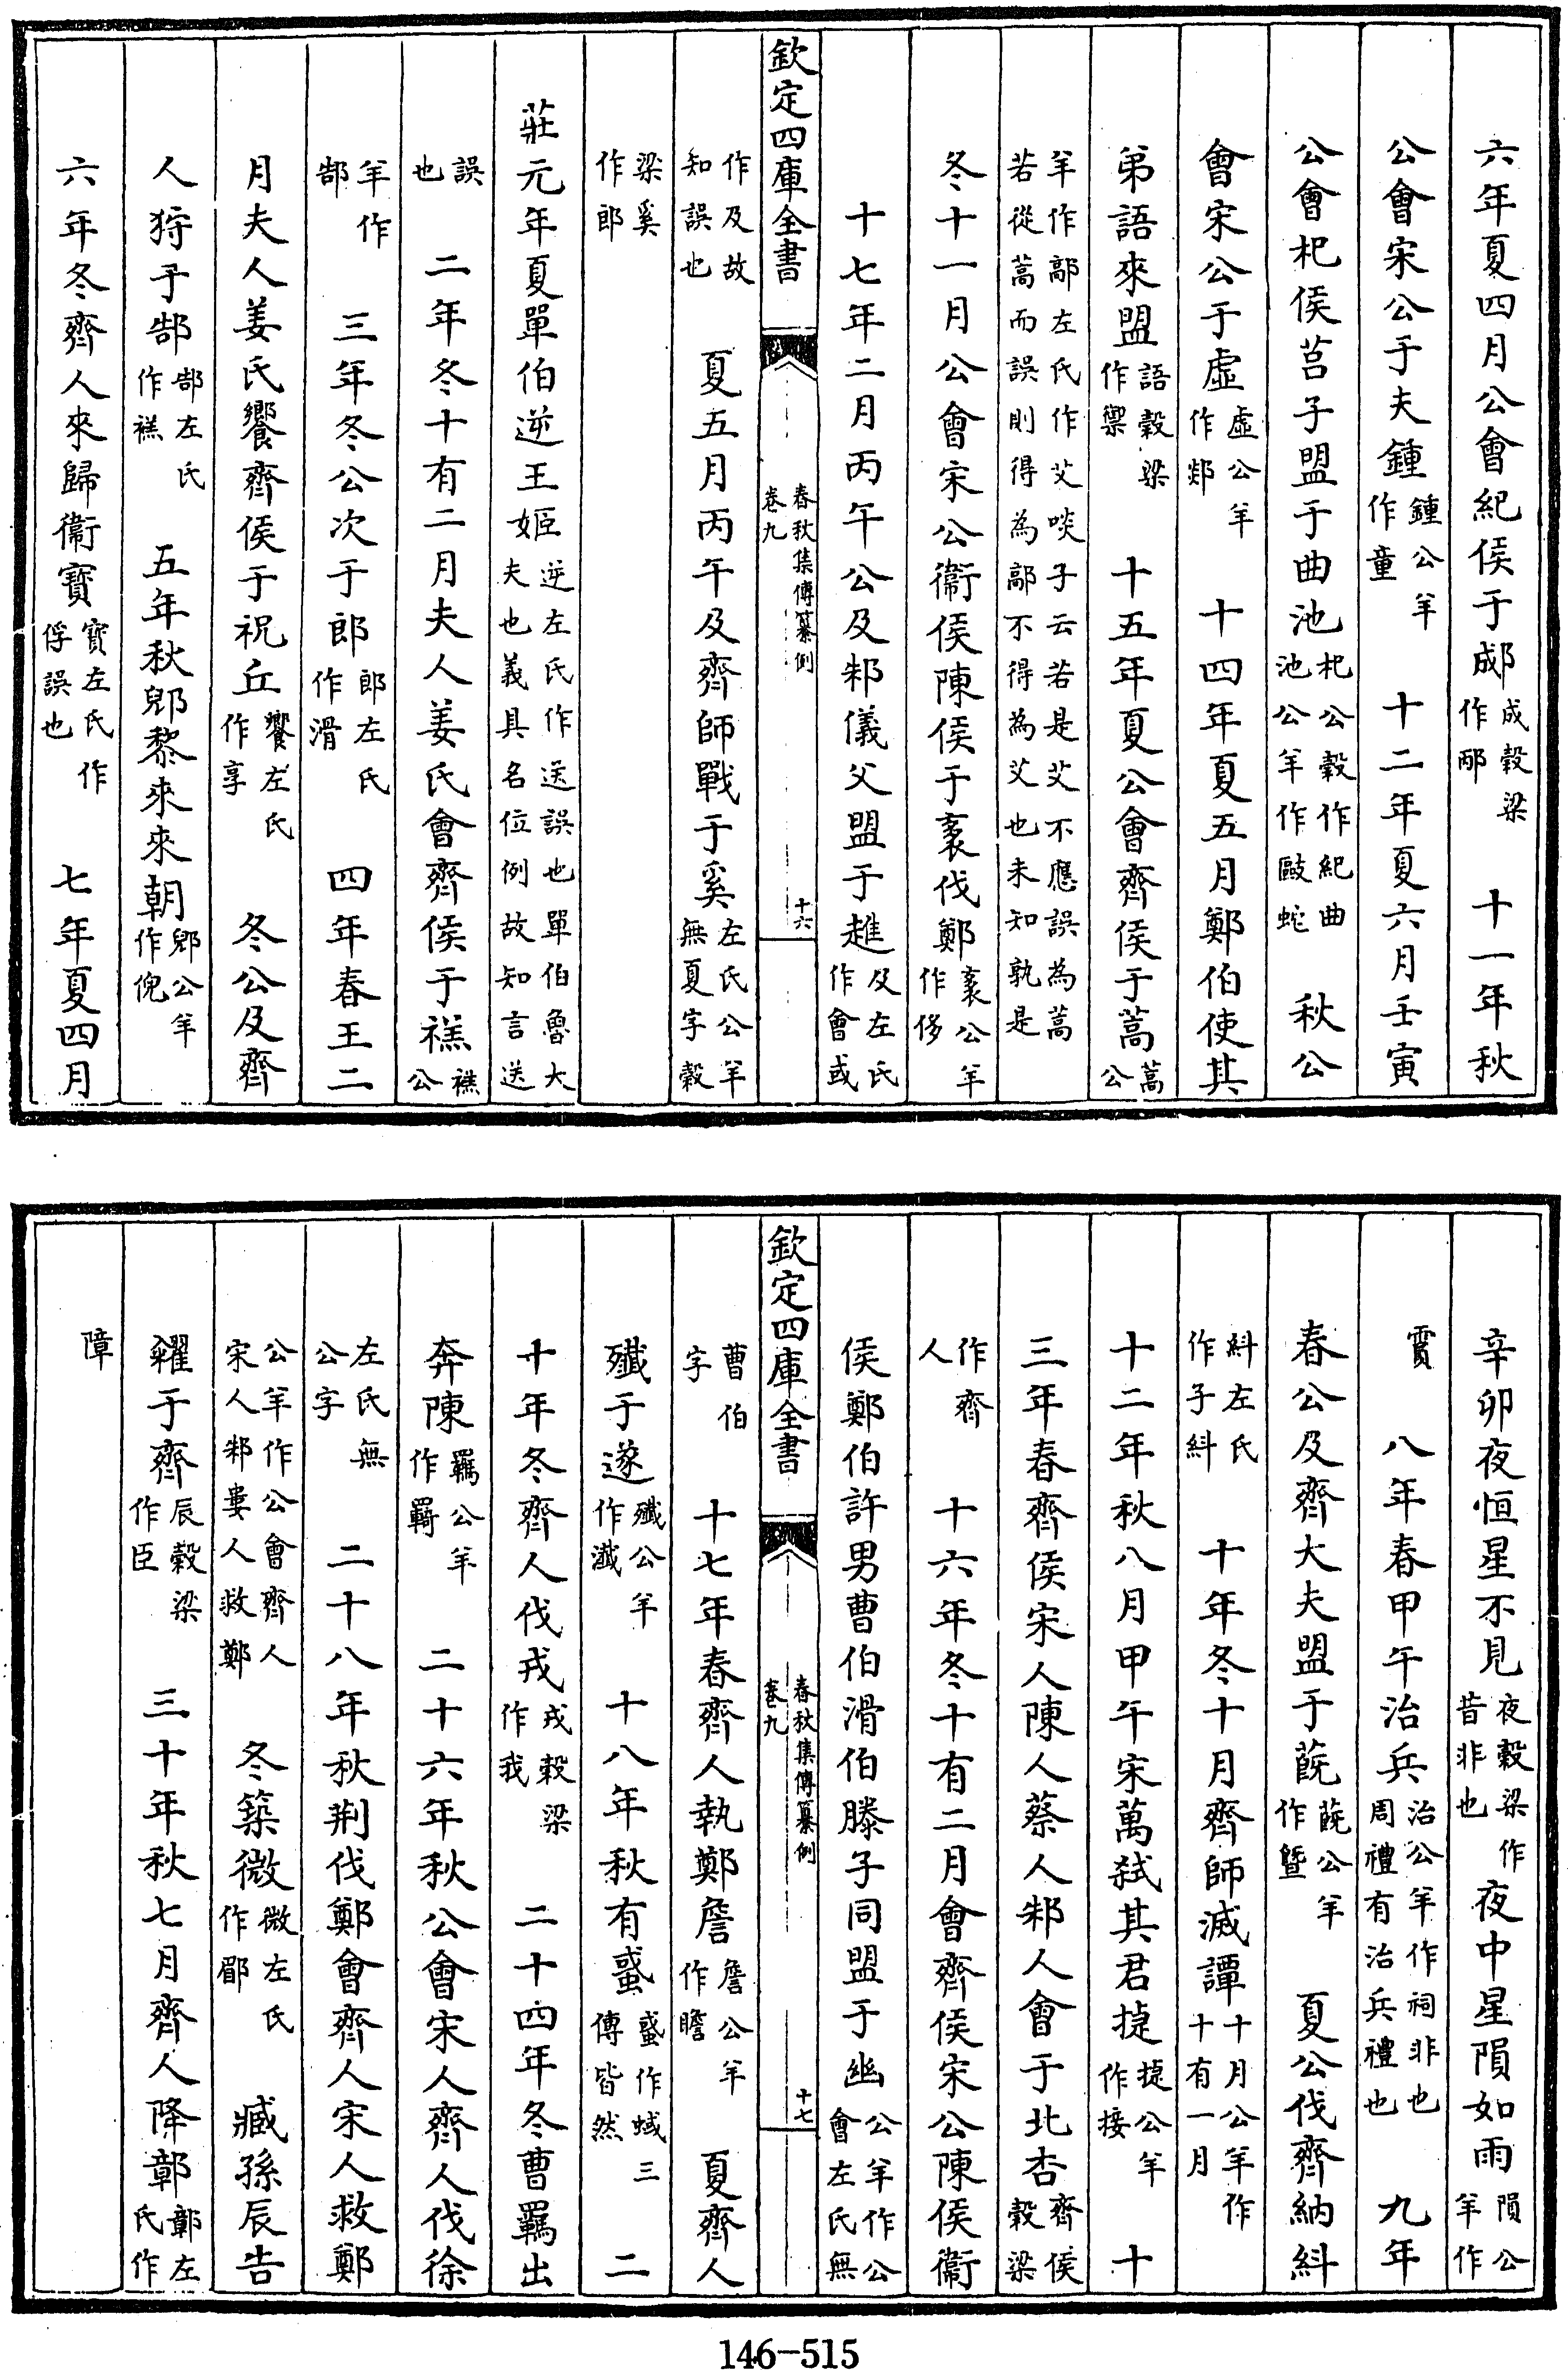 六年夏四月公會紀侯于郕成穀梁作郕 十一年秋
公會宋公于夫鍾鍾公羊作童 十二年夏六月壬寅
公會杞侯莒子盟于曲池杞公穀作紀曲池公羊作毆蛇 秋公
會宋公于虛虛公羊作郯 十四年夏五月鄭伯使其
弟語來盟語穀梁作禦 十五年夏公會齊侯于蒿蒿公
羊作鄗左氏作艾啖子云若是艾不應誤為蒿若從蒿而誤則得為鄗不得為艾也未知孰是
冬十一月公會宋公衞侯陳侯于袲伐鄭袲公羊作侈
十七年二月丙午公及邾儀父盟于趡及左氏作會或
欽定四庫全書 春秋集傳纂例 卷九 十六
作及故知誤也 夏五月丙午及齊師戰于奚左氏公羊無夏字穀
梁奚作郎
莊元年夏單伯逆王姬逆左氏作送誤也單伯魯大夫也義具名位例故知言送
誤也 二年冬十有二月夫人姜氏會齊侯于禚禚公
羊作郜 三年冬公次于郎郎左氏作滑 四年春王二
月夫人姜氏饗齊侯于祝丘饗左氏作享 冬公及齊
人狩于郜郜左氏作禚 五年秋郳黎來來朝郳公羊作倪
六年冬齊人來歸衞寶寶左氏作俘誤也 七年夏四月
辛卯夜恒星不見夜穀梁作昔非也 夜中星隕如雨隕公羊作
霣 八年春甲午治兵治公羊作祠非也周禮有治兵禮也 九年
春公及齊大夫盟于蔇蔇公羊作暨 夏公伐齊納糾
糾左氏作子糾 十年冬十月齊師滅譚十月公羊作十有一月
十二年秋八月甲午宋萬弑其君捷捷公羊作接 十
三年春齊侯宋人陳人蔡人邾人會于北杏齊侯穀梁
作齊人 十六年冬十有二月會齊侯宋公陳侯衞
侯鄭伯許男曹伯滑伯滕子同盟于幽公羊作公會左氏無
欽定四庫全書 春秋集傳纂例 卷九 十七
曹伯字 十七年春齊人執鄭詹詹公羊作瞻 夏齊人
殲于遂殲公羊作瀸 十八年秋有蜮蜮作蜮三傳皆然 二
十年冬齊人伐戎戎穀梁作我 二十四年冬曹羈出
奔陳羈公羊作羇 二十六年秋公會宋人齊人伐徐
左氏無公字 二十八年秋荆伐鄭會齊人宋人救鄭
公羊作公會齊人宋人邾婁人救鄭 冬築微微左氏作郿 臧孫辰告
糴于齊辰穀梁作臣 三十年秋七月齊人降鄣鄣左氏作
障
146-515